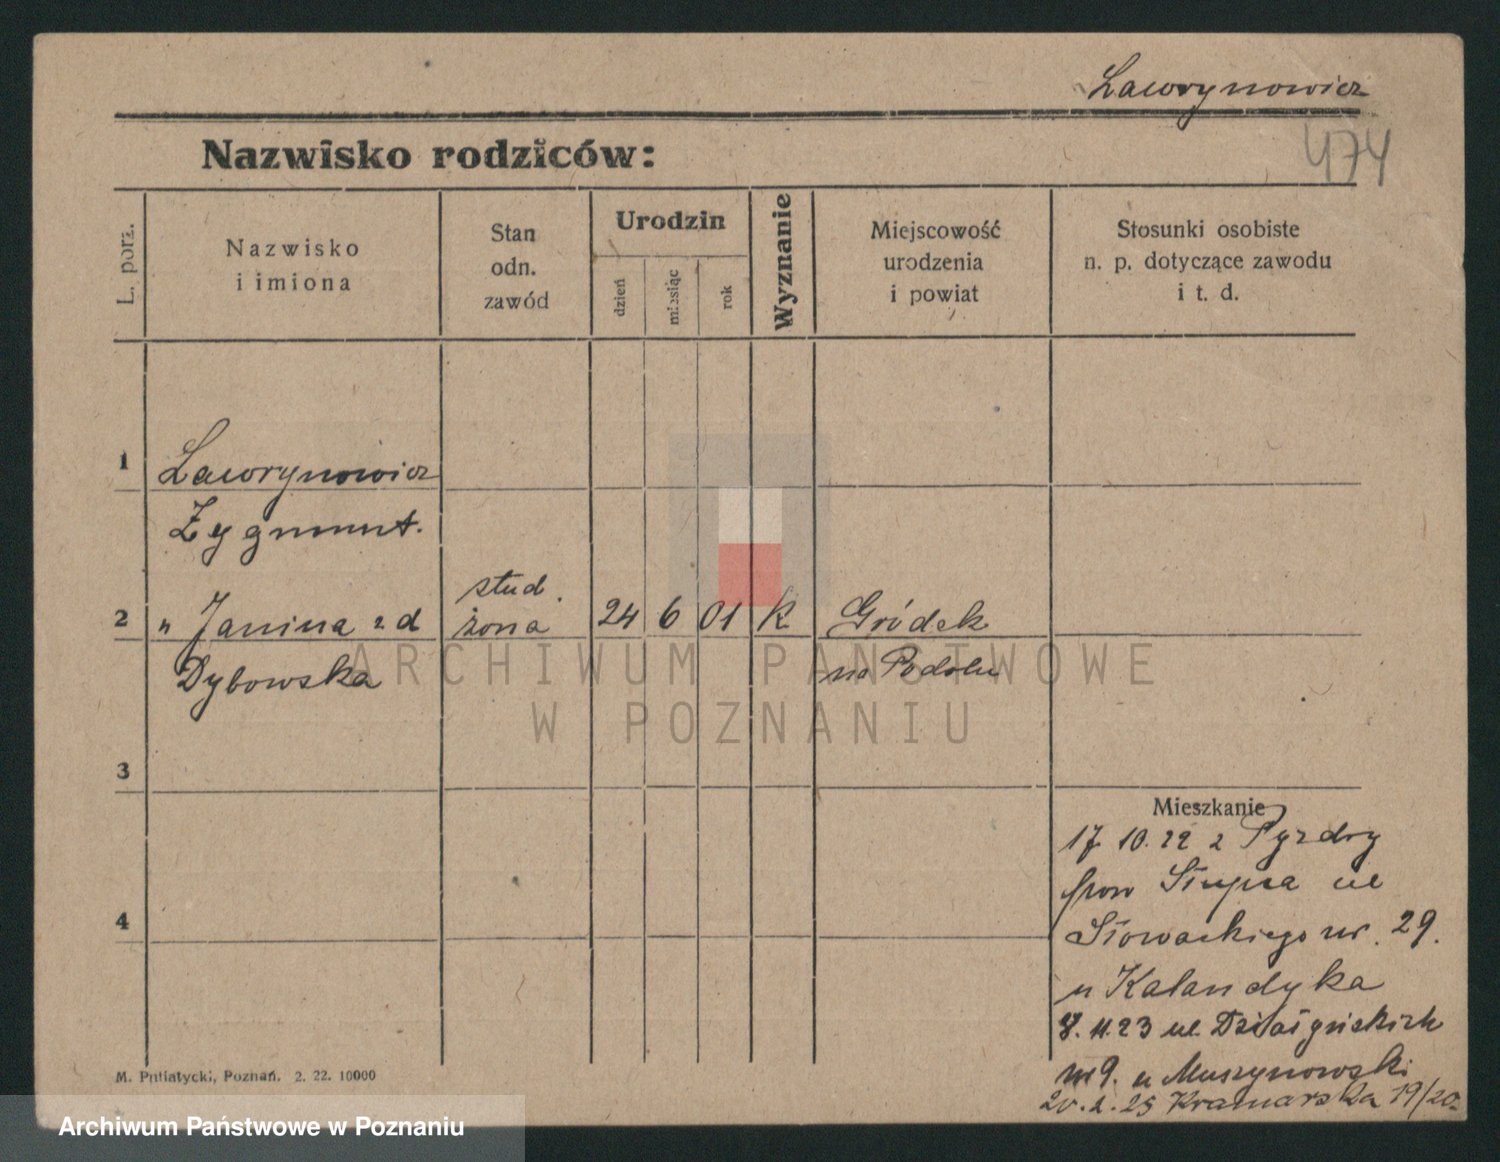 Ławrynowicz
474
Nazwisko rodziców:
L. porz.
Nazwisko
i imiona
Stan
odn.
zawód
Urodzin
dzień
miesiąc
rok
Wyznanie
Miejscowość
urodzenia
i powiat
Stosunki osobiste
n. p. dotyczące zawodu
i t. d.
1 Ławrynowicz
Zygmunt.
stud.
2 „ Janina z d żona 24 6 01 k Gródek
Dybowska na Podolu
3
Mieszkanie
17 10. 22 z Pyzdry
pow Słupca ul
4
Słowackiego nr. 29.
u Kalandyka
8. 11. 23 ul. Działyńskich
nr 9. u Muszynowski
20. 2. 25 Kramarska 19/20.
M. Putiatycki, Poznań. 2. 22. 10000
ARCHIWUM PAŃSTWOWE
W POZNANIU
Archiwum Państwowe w Poznaniu